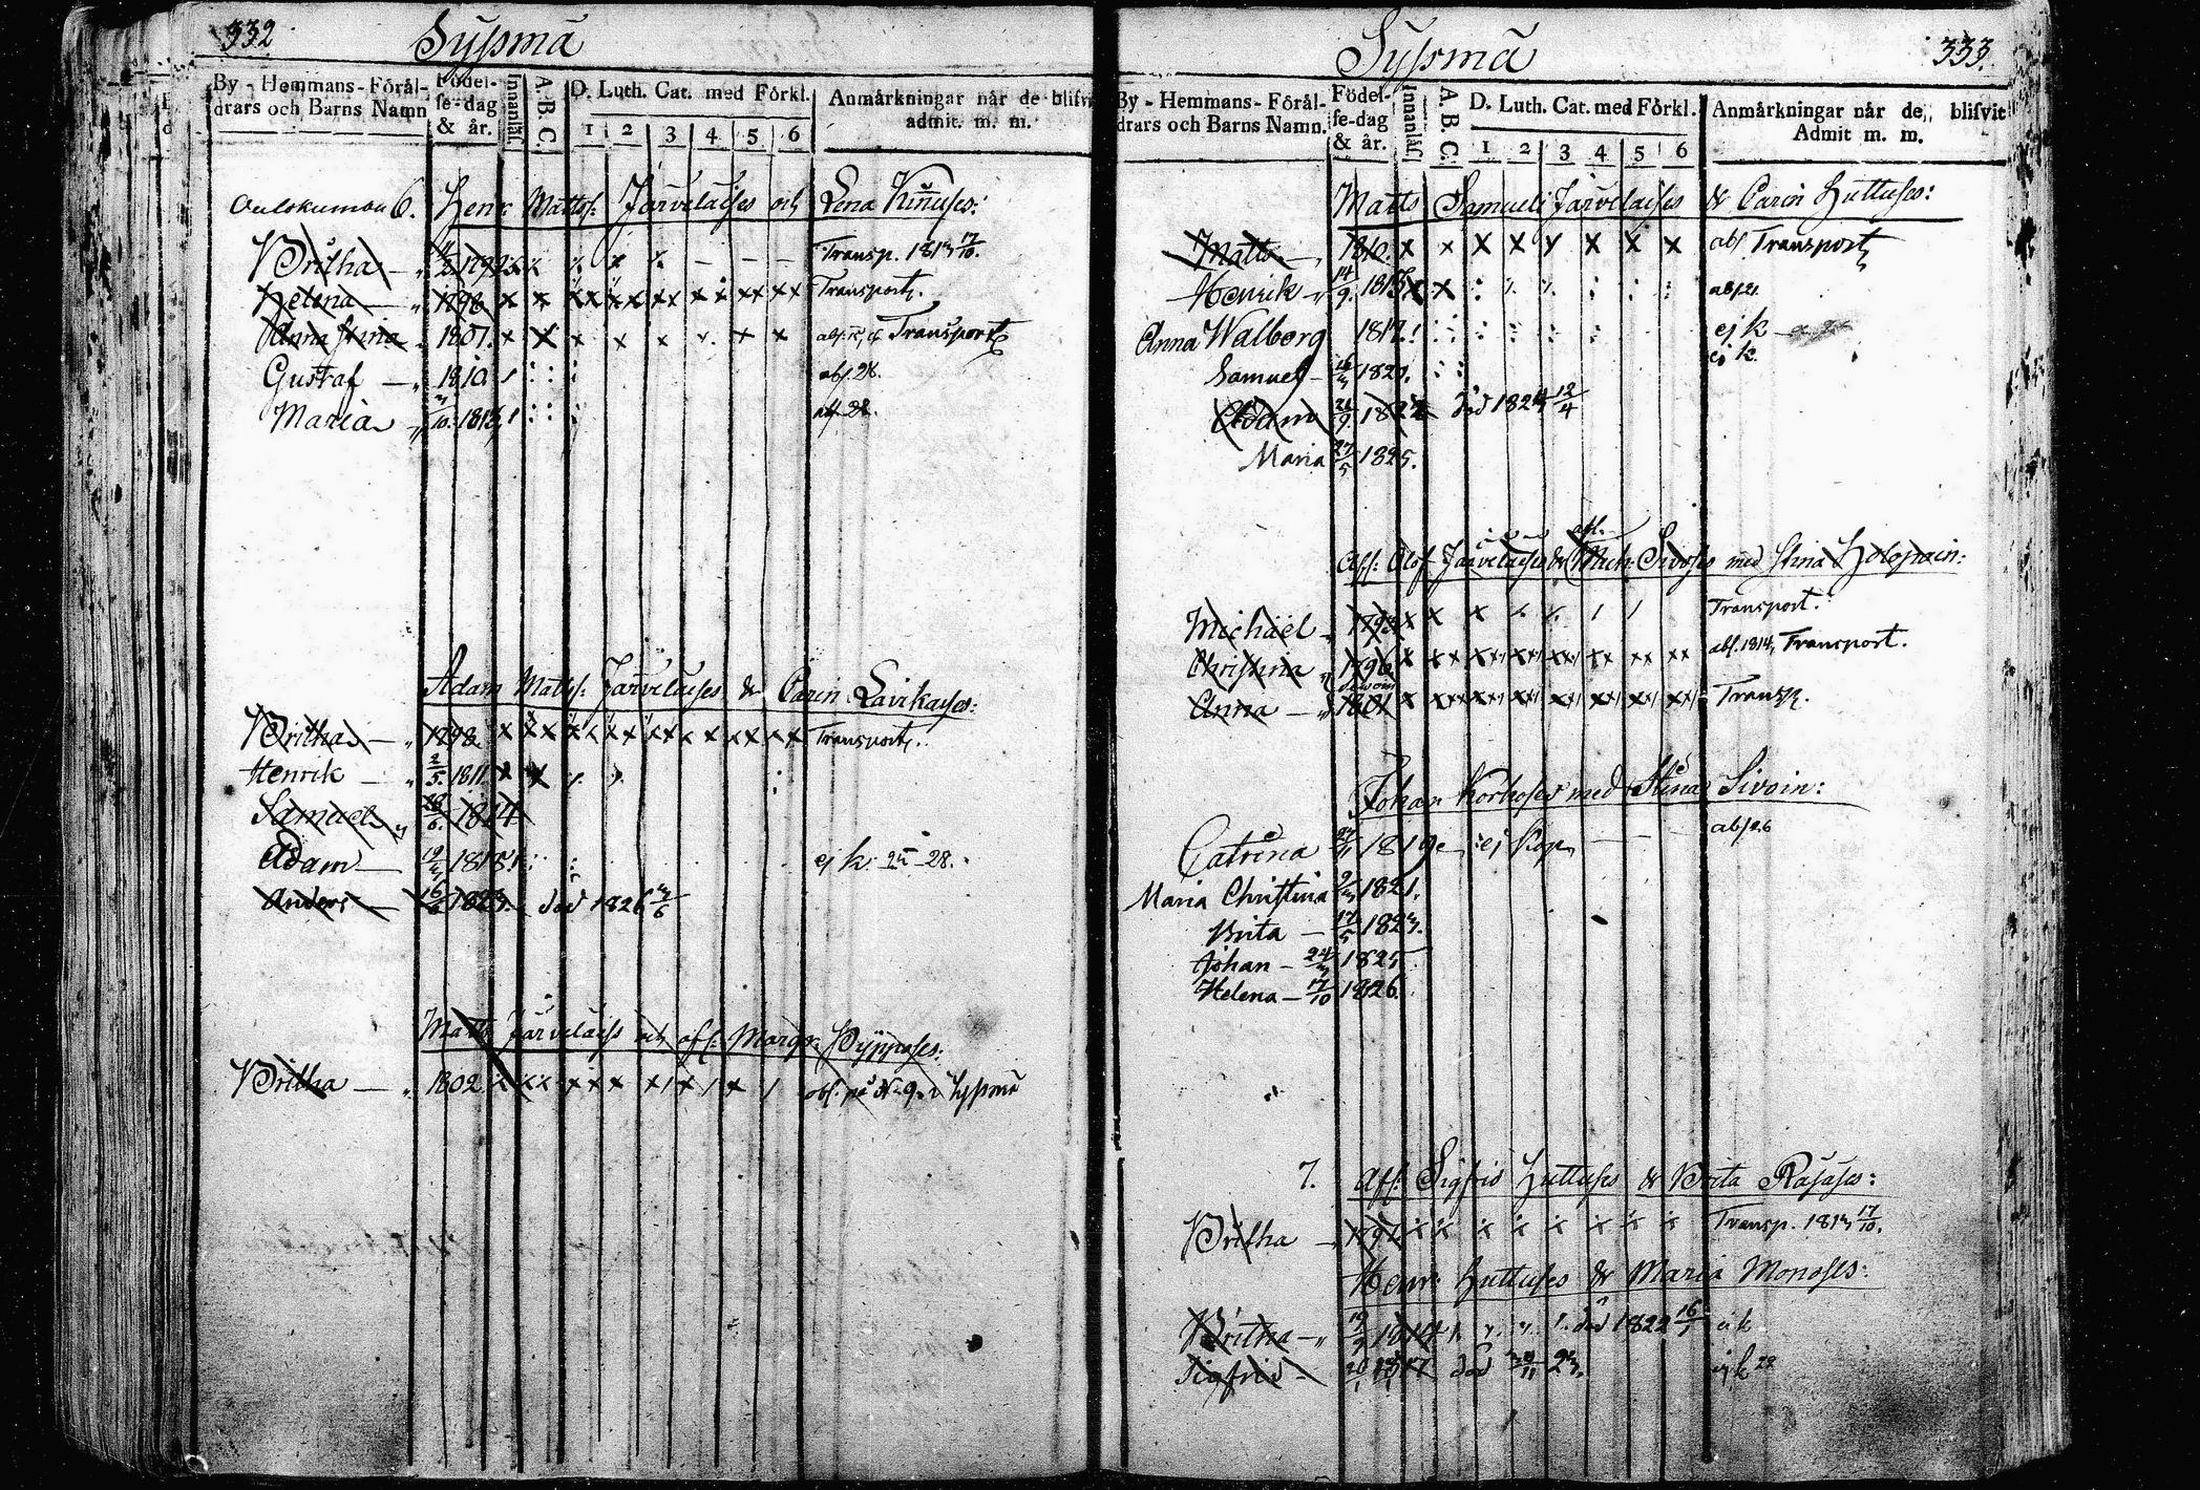 332
Syssmä
By - Hemmans - Föräl-
drars och Barns Namn
Födel-
se-dag
& år.
Innanläs.
A. B. C.
D. Luth. Cat. med Förkl.
1 2 3 4 5 6
Anmärkningar når de blifvi
admit. m. m.
6. Henr: Mattss: Järveläises och Lena Kinuses:
Britha 1799 Transp. 1813 17/10.
Helena 1798 Transport.
Anna Stina 1807 Transport
Gustaf 1810 abs. 28.
Maria 1813 abs. 28.
Adam Matss: Järveläises & Carin Laivkaises:
Britha 1798 Transport.
Henrik 2/5 1811
Samuel 1814
Adam 1818 ej k. 25-28.
Anders 1823. död 1826 3/6
Matts Järveläiss och afl: Margr: Pypposes:
Britha 1802 abs. på N. 9. i Syssmä
Syssmä
333.
By - Hemmans - Föräl-
drars och Barns Namn.
Födel-
se-dag
& år.
Innanläs.
A. B. C.
D. Luth. Cat. med Förkl.
1 2 3 4 5 6
Anmärkningar når de,, blifvit
Admit m. m.
Matts Samueli Järveläises & Carin Huttuses:
Matts 1810. abs Transport
Henrik 14/9. 1815 abs 21.
Anna Walborg 1817. ej k
ej k
Samuel 1820.
Adam 21/9. 1822 död 1824 12/4
Maria 27/5 1825.
afl.
Afl: Olof Järveläises & Mich: Sivoses med Stina Holopain:
Michäel 1793 Transport.
Christina 1796 abs. 1814, Transport.
Anna 1801 Transp.
Johan Korhoses med Stina Sivoin:
Catrina 27/11 1819 ej kop, abs 26
Maria Christina 9/3 1821.
Brita 17/5 1823.
Johan 24/3 1825
Helena 17/10 1826.
7. Afl: Sigfrid Huttuses & Brita Räsäses:
Britha 1797 Transp. 1813 17/10.
Henr: Huttuses & Maria Monoses:
Britha 19/9 1814 död 1822 16/5 ej k
Sigfrid 1817 död ej k 28